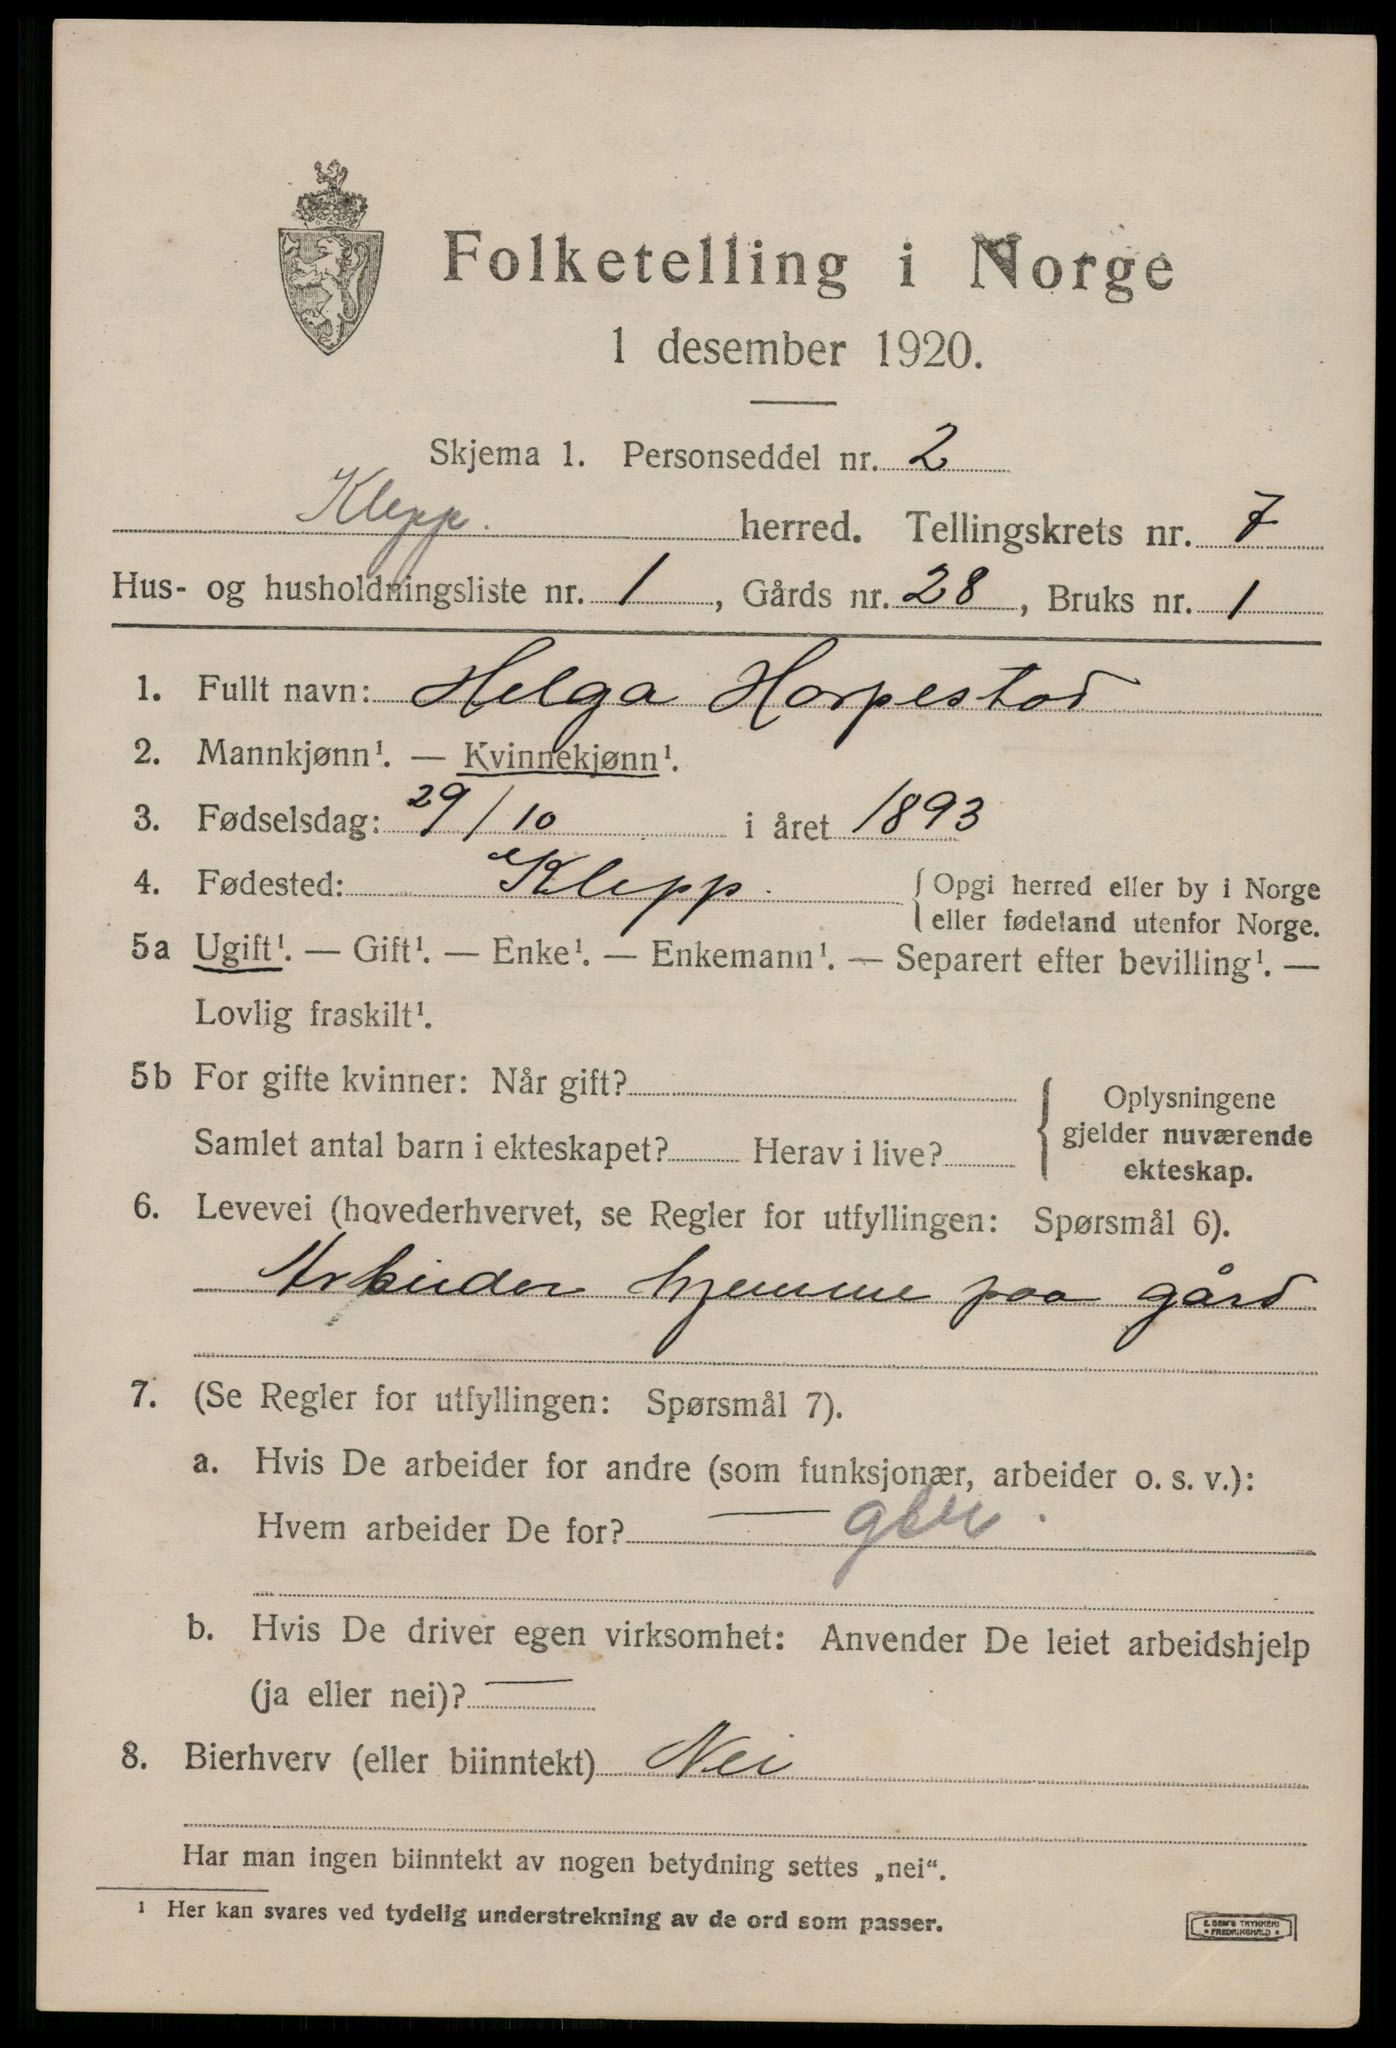 Folketelling i Norge
1 desember 1920.
Skjema 1. Personseddel nr. 2
Klepp. herred. Tellingskrets nr. 7
Hus- og husholdningsliste nr. 1, Gårds nr. 28, Bruks nr. 1
1. Fullt navn: Helga Horpestad
2. Mannkjønn¹. — Kvinnekjønn¹.
3. Fødselsdag: 29/10 i året 1893
4. Fødested: Klepp. { Opgi herred eller by i Norge
eller fødeland utenfor Norge.
5a Ugift¹. — Gift¹. — Enke¹. — Enkemann¹. — Separert efter bevilling¹. —
Lovlig fraskilt¹.
5b For gifte kvinner: Når gift?
Samlet antal barn i ekteskapet? Herav i live?
{ Oplysningene
gjelder nuværende
ekteskap.
6. Levevei (hovederhvervet, se Regler for utfyllingen: Spørsmål 6).
Arbeider hjemme paa gård
7. (Se Regler for utfyllingen: Spørsmål 7).
a. Hvis De arbeider for andre (som funksjonær, arbeider o. s. v.):
Hvem arbeider De for? —
b. Hvis De driver egen virksomhet: Anvender De leiet arbeidshjelp
(ja eller nei)? —
8. Bierhverv (eller biinntekt) Nei
Har man ingen biinntekt av nogen betydning settes „nei“.
¹ Her kan svares ved tydelig understrekning av de ord som passer.
E. SEM'S TRYKKERI
• FREDRIKSHALD •